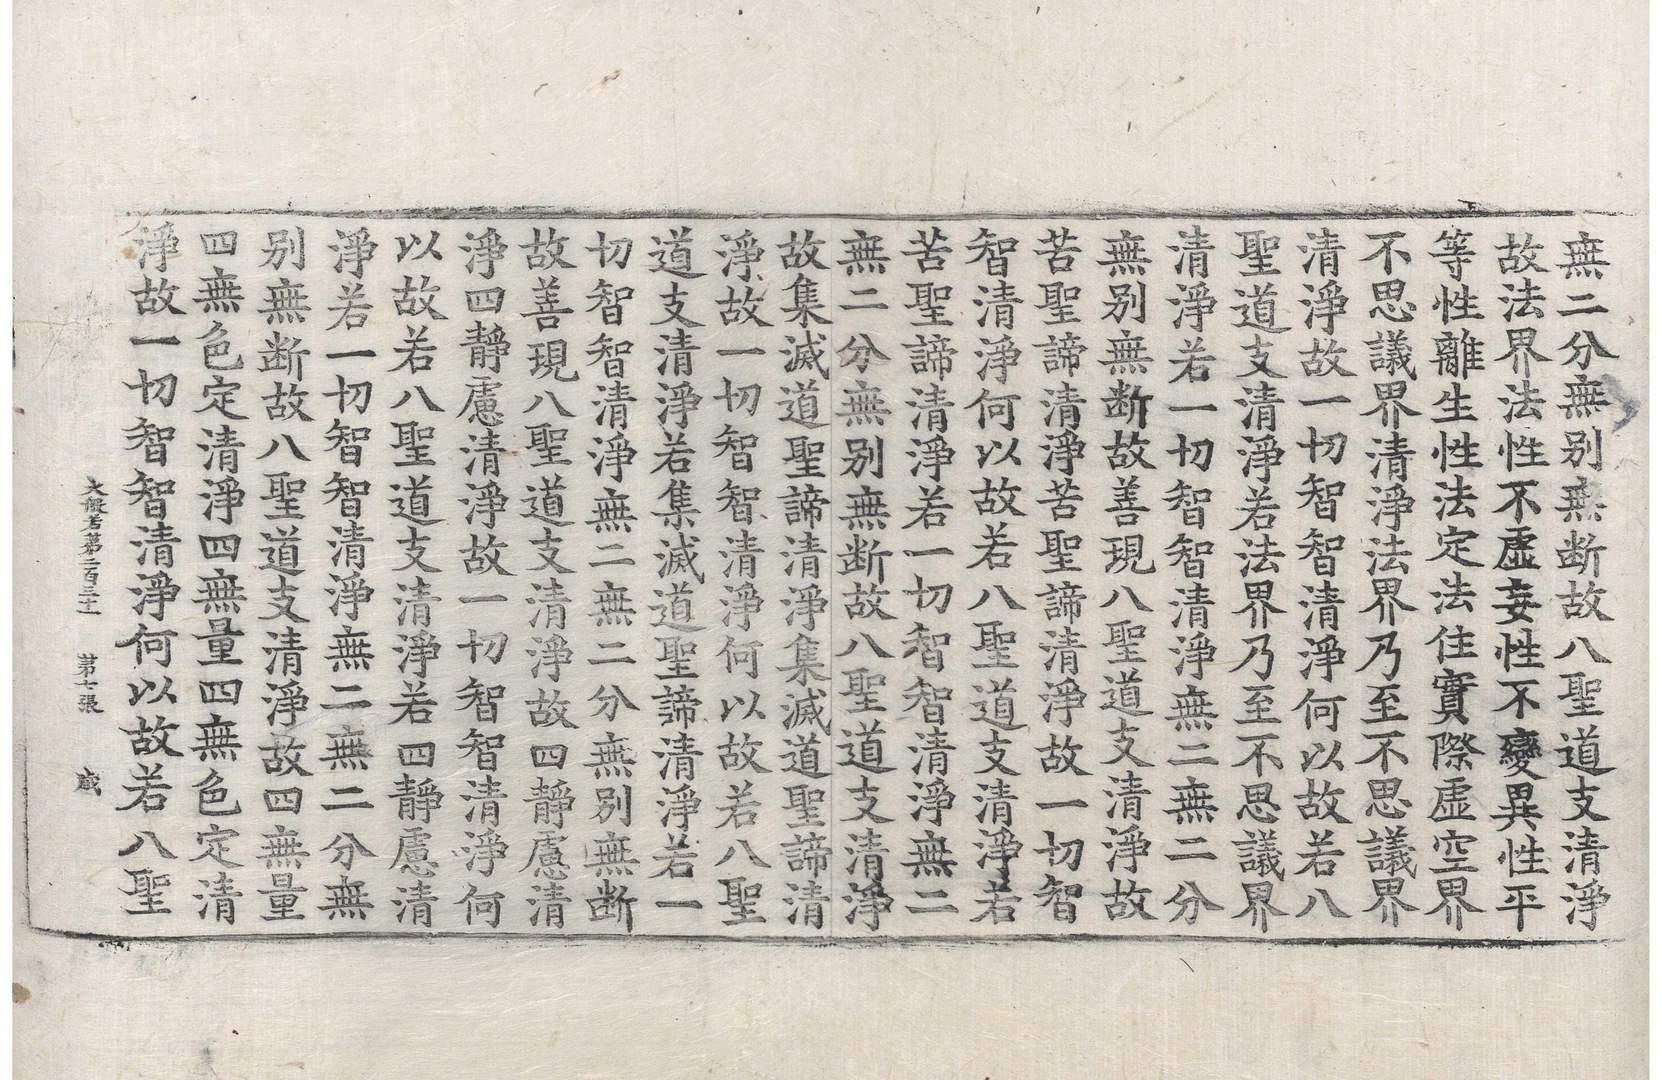 無二分無别無断故八聖道支清淨
故法界法性不虛妄性不變異性平
等性離生性法定法住實際虛空界
不思議界清淨法界乃至不思議界
清淨故一切智智清淨何以故若八
聖道支清淨若法界乃至不思議界
清淨若一切智智清淨無二無二分
無别無断故善現八聖道支清淨故
苦聖諦清淨苦聖諦清淨故一切智
智清淨何以故若八聖道支清淨若
苦聖諦清淨若一切智智清淨無二
無二分無别無断故八聖道支清淨
故集滅道聖諦清淨集滅道聖諦清
淨故一切智智清淨何以故若八聖
道支清淨若集滅道聖諦清淨若一
切智智清淨無二無二分無别無断
故善現八聖道支清淨故四靜慮清
淨四靜慮清淨故一切智智清淨何
以故若八聖道支清淨若四靜慮清
淨若一切智智清淨無二無二分無
别無断故八聖道支清淨故四無量
四無色定清淨四無量四無色定清
淨故一切智智清淨何以故若八聖
大般若第二百三十 第七張